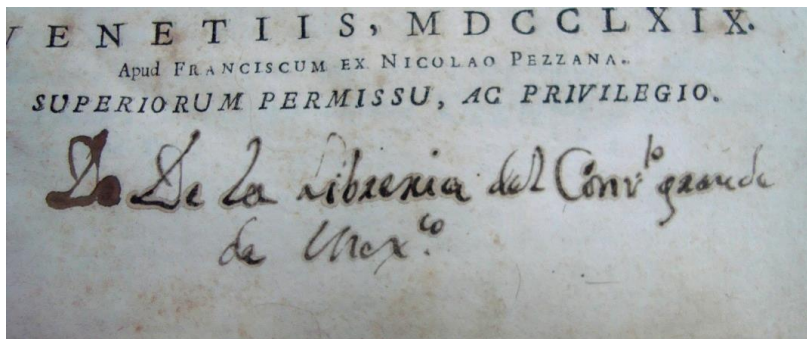 VENETIIS, MDCCLXIX.
Apud FRANCISCUM EX NICOLAO PEZZANA.
SUPERIORUM PERMISSU, AC PRIVILEGIO.
De De la Libreria del Conv.to grande
de Mex.co